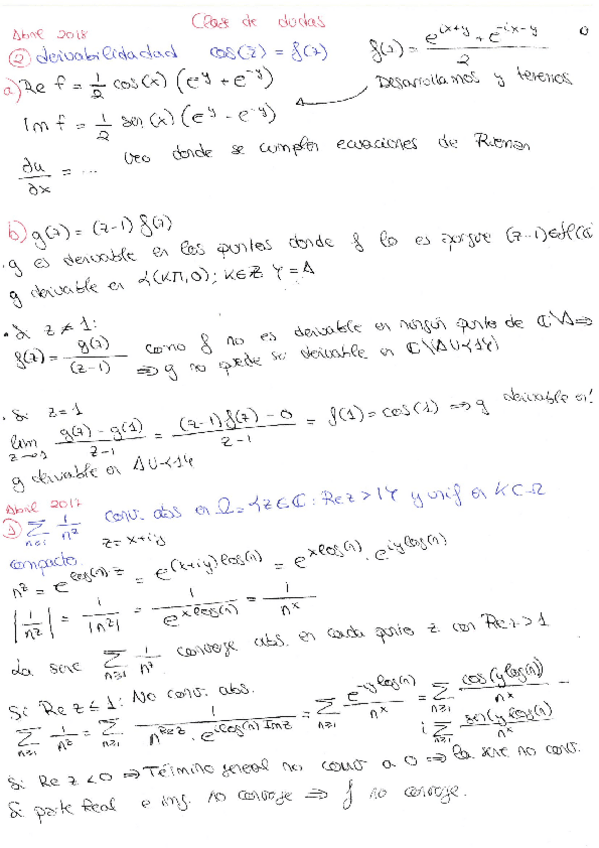 Clase de dudas
Abril 2018
② derivabilidad cos(z̄) = f(z) f(z) = (e^{ix+y} + e^{-ix-y})/2
a) Re f = 1/2 cos(x) (e^y + e^{-y}) Desarrollamos y tenemos
Im f = 1/2 sen(x) (e^y - e^{-y})
∂u/∂x = ... Veo donde se cumplen ecuaciones de Rieman
b) g(z) = (z-1) f(z)
· g es derivable en los puntos donde f lo es porque (z-1)∈H(ℂ
g derivable en {(kπ,0); k∈ℤ} = Δ
· Si z ≠ 1:
f(z) = g(z)/(z-1) como f no es derivable en ningún punto de ℂ\Δ ⇒
⇒ g no puede ser derivable en ℂ\Δ∪{1}
· Si z=1
lim_{z→1} (g(z) - g(1))/(z-1) = ((z-1)f(z) - 0)/(z-1) = f(1) = cos(1) ⇒ g derivable en 1
g derivable en Δ∪{1}
Abril 2017
① Σ_{n≥1} 1/n^z conv. abs en Ω = {z∈ℂ : Re z > 1} y unif en K⊂Ω
compacto. z = x+iy
n^z = e^{log(n)·z} = e^{(x+iy)log(n)} = e^{x log(n)} · e^{iy log(n)}
|1/n^z| = 1/|n^z| = 1/e^{x log(n)} = 1/n^x
La serie Σ_{n≥1} 1/n^z converge abs. en cada punto z con Re z > 1
Si Re z ≤ 1: No conv. abs.
Σ_{n≥1} 1/n^z = Σ_{n≥1} 1/(n^{Re z} · e^{i log(n) Im z}) = Σ_{n≥1} e^{-iy log(n)}/n^x = Σ_{n≥1} cos(y log(n))/n^x -
i Σ_{n≥1} sen(y log(n))/n^x
Si Re z < 0 ⇒ Término general no conv a 0 ⇒ la serie no conv.
Si parte Real e img. no converge ⇒ f no converge.